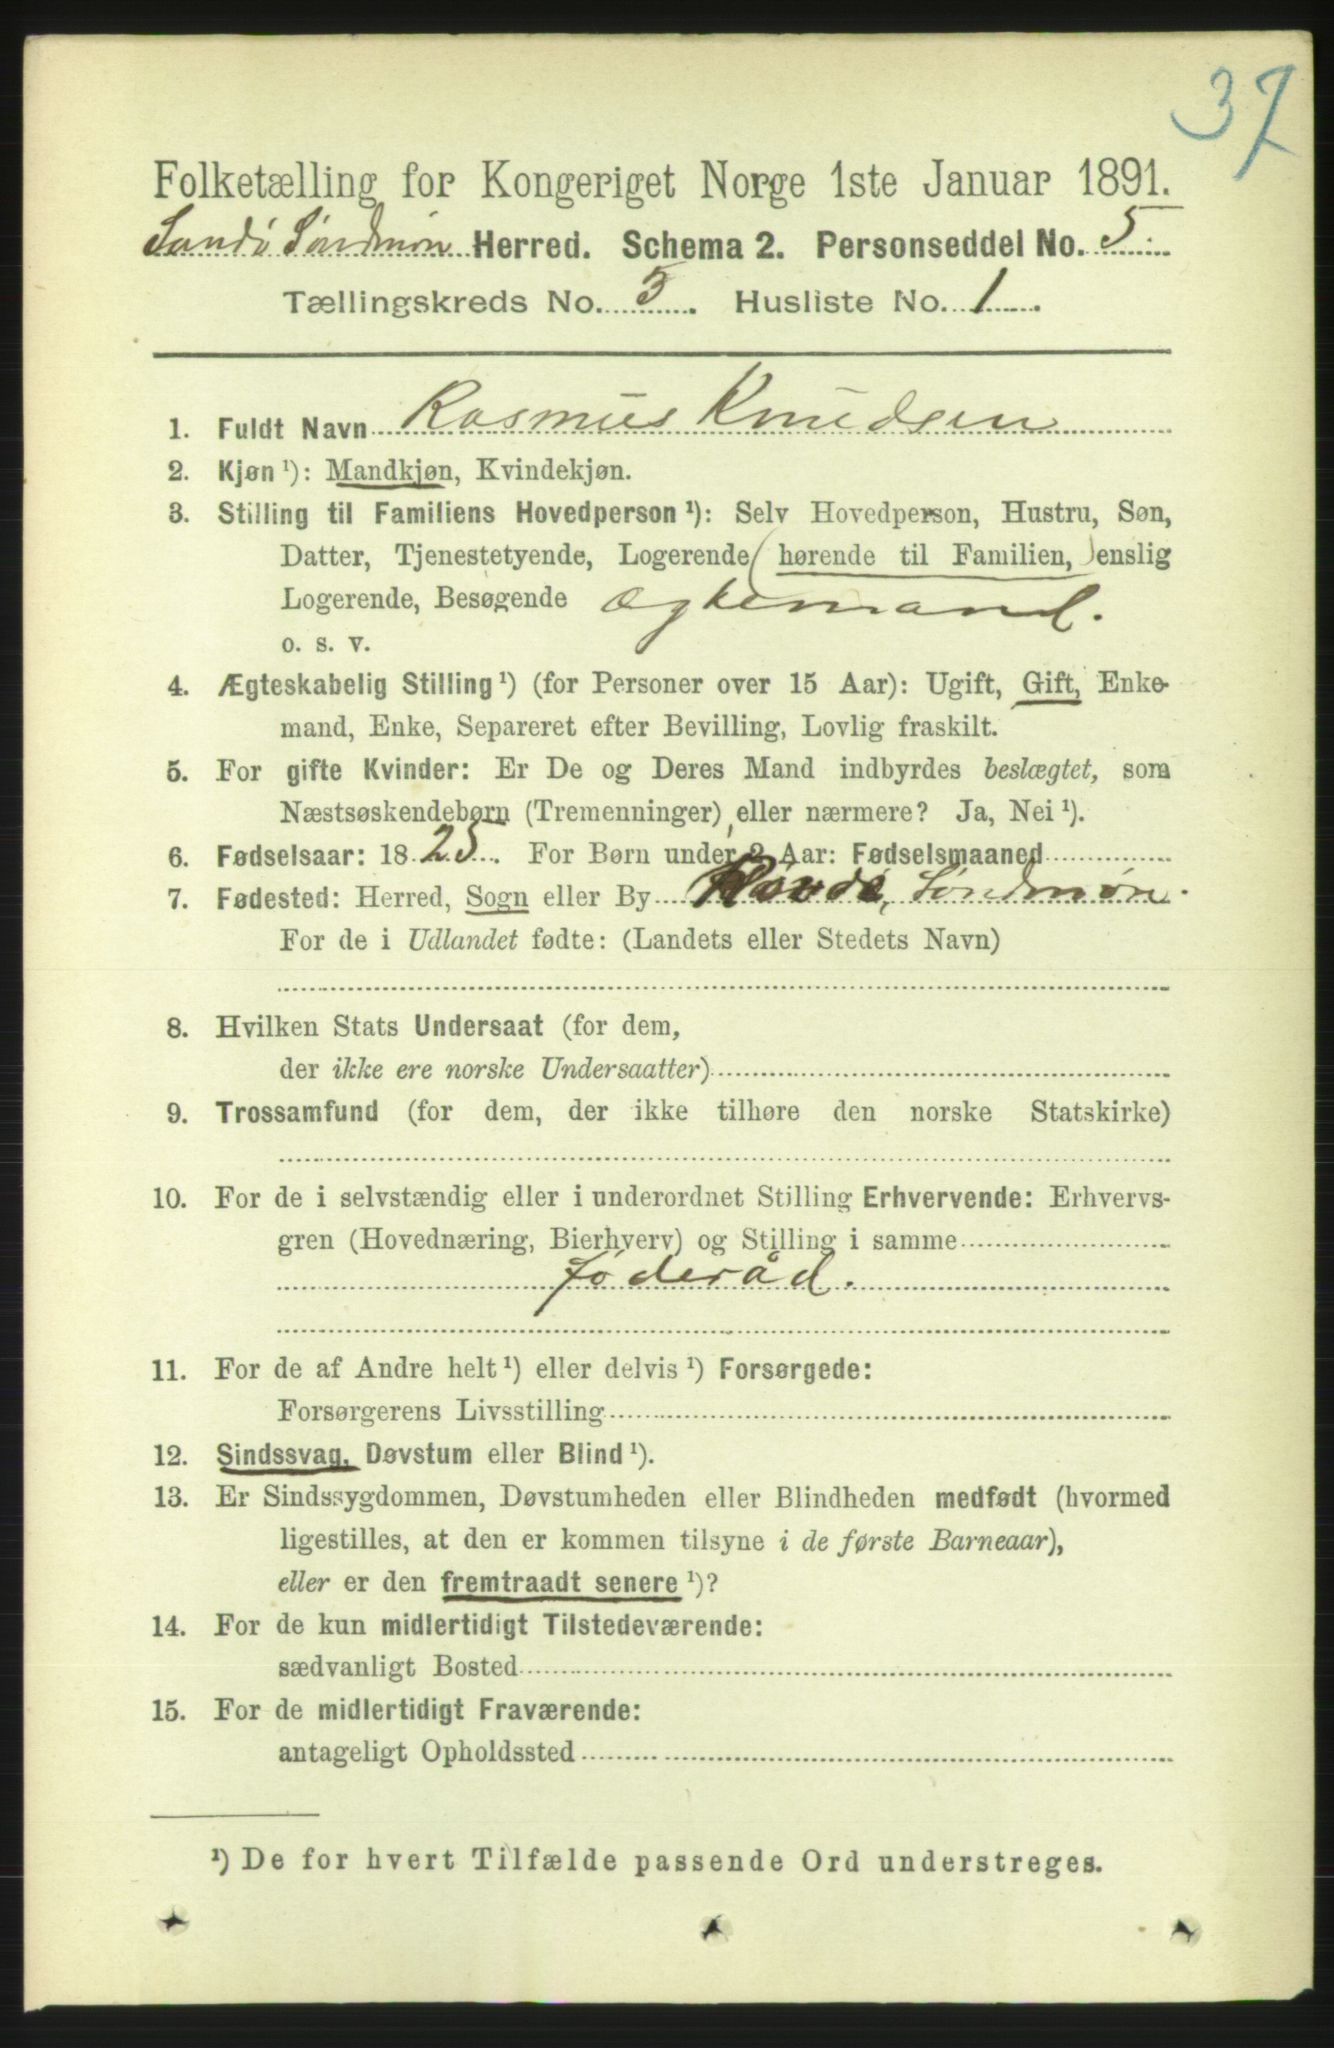 37
Folketælling for Kongeriget Norge 1ste Januar 1891.
Sandö Söndmör Herred. Schema 2. Personseddel No. 5.
Tællingskreds No. 3. Husliste No. 1.
1. Fuldt Navn Rasmus Knudsen
2. Kjøn ¹): Mandkjøn, Kvindekjøn.
3. Stilling til Familiens Hovedperson ¹): Selv Hovedperson, Hustru, Søn,
Datter, Tjenestetyende, Logerende (hørende til Familien,) enslig
Logerende, Besøgende Ægtemand.
o. s. v.
4. Ægteskabelig Stilling ¹) (for Personer over 15 Aar): Ugift, Gift, Enke-
mand, Enke, Separeret efter Bevilling, Lovlig fraskilt.
5. For gifte Kvinder: Er De og Deres Mand indbyrdes beslægtet, som
Næstsøskendebørn (Tremenninger) eller nærmere? Ja, Nei ¹).
6. Fødselsaar: 1825. For Børn under 2 Aar: Fødselsmaaned
7. Fødested: Herred, Sogn eller By Rövde, Söndmör.
For de i Udlandet fødte: (Landets eller Stedets Navn)
8. Hvilken Stats Undersaat (for dem,
der ikke ere norske Undersaatter)
9. Trossamfund (for dem, der ikke tilhøre den norske Statskirke)
10. For de i selvstændig eller i underordnet Stilling Erhvervende: Erhvervs-
gren (Hovednæring, Bierhverv) og Stilling i samme
föderåd.
11. For de af Andre helt ¹) eller delvis ¹) Forsørgede:
Forsørgerens Livsstilling
12. Sindssvag, Døvstum eller Blind ¹).
13. Er Sindssygdommen, Døvstumheden eller Blindheden medfødt (hvormed
ligestilles, at den er kommen tilsyne i de første Barneaar),
eller er den fremtraadt senere ¹)?
14. For de kun midlertidigt Tilstedeværende:
sædvanligt Bosted
15. For de midlertidigt Fraværende:
antageligt Opholdssted
¹) De for hvert Tilfælde passende Ord understreges.